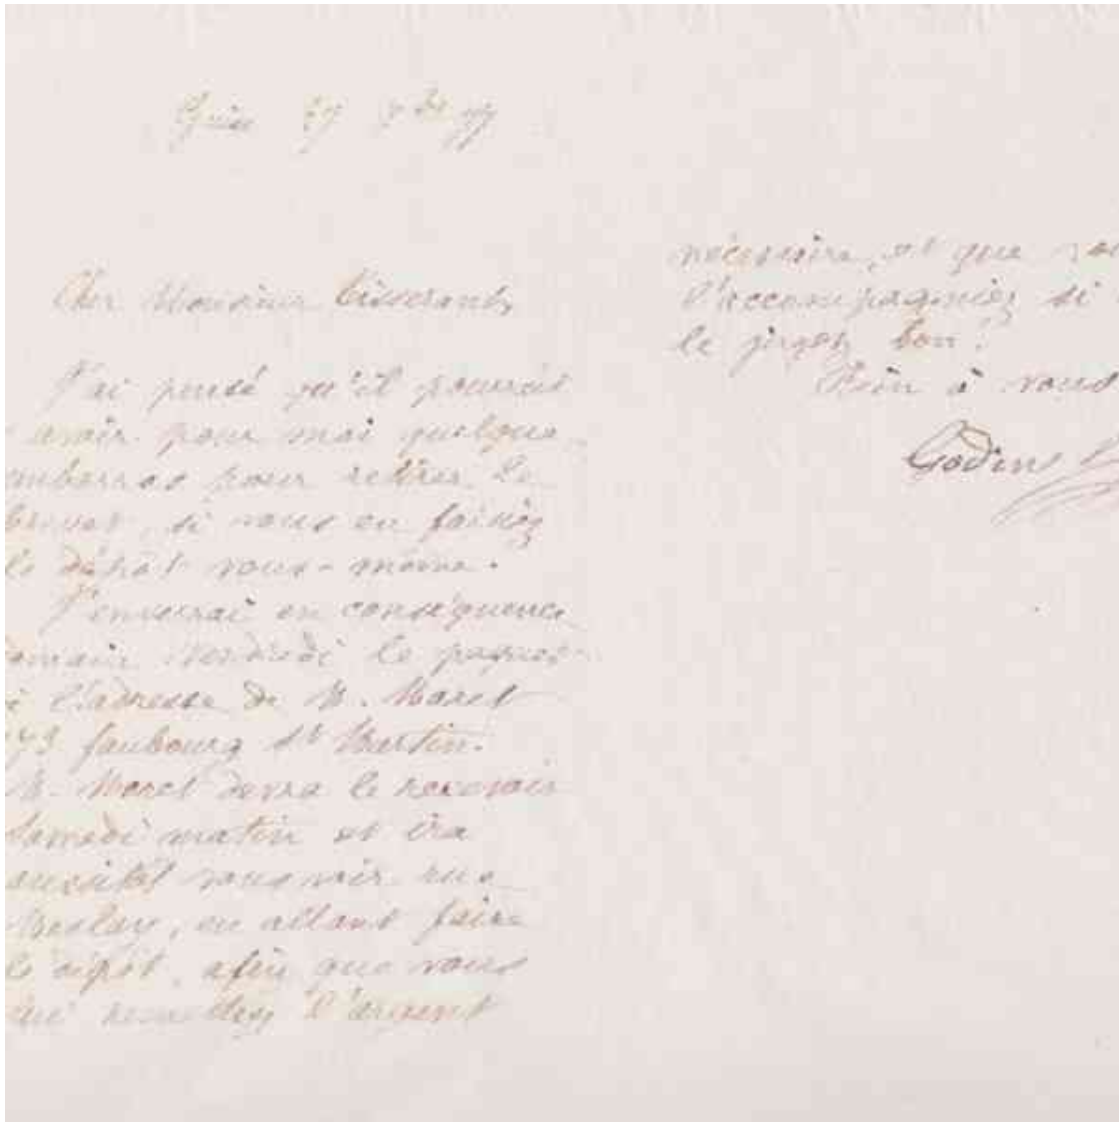 Guise 27 9bre 77
Cher Monsieur Tisserant,
J'ai pensé qu'il pourrait
avoir pour moi quelque
mbarras pour retirer le
brevet, si vous en faisiez
le dépôt vous-même.
J'enverrai en conséquence
emain Vendredi le paquet
à l'adresse de M. Maret
173 faubourg St Martin.
M. Maret devra le recevoir
Samedi matin et ira
aussitôt vous voir rue
Meslay, en allant faire
le dépôt, afin que vous
lui remettiez l'argent
nécessaire, et que
l'accompagniez si
le jugez bon.
Bien à vous
Godin